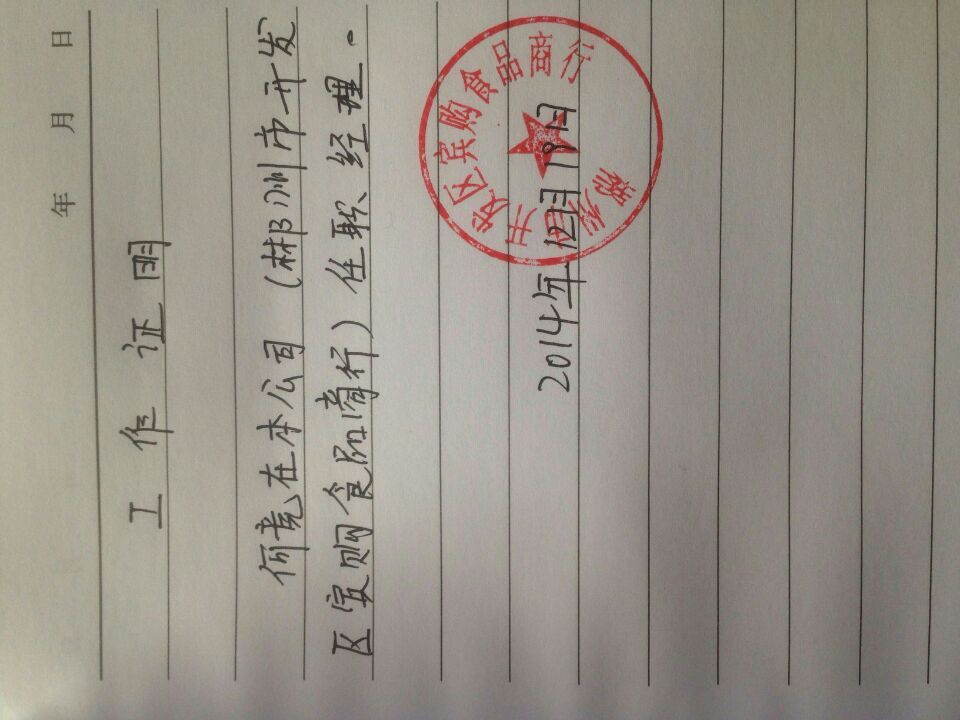 年 月 日
工作证明
何竞在本公司(郴州市开发
区宾购食品商行)任职经理。
2014年12月19日
郴州市开发区宾购食品商行